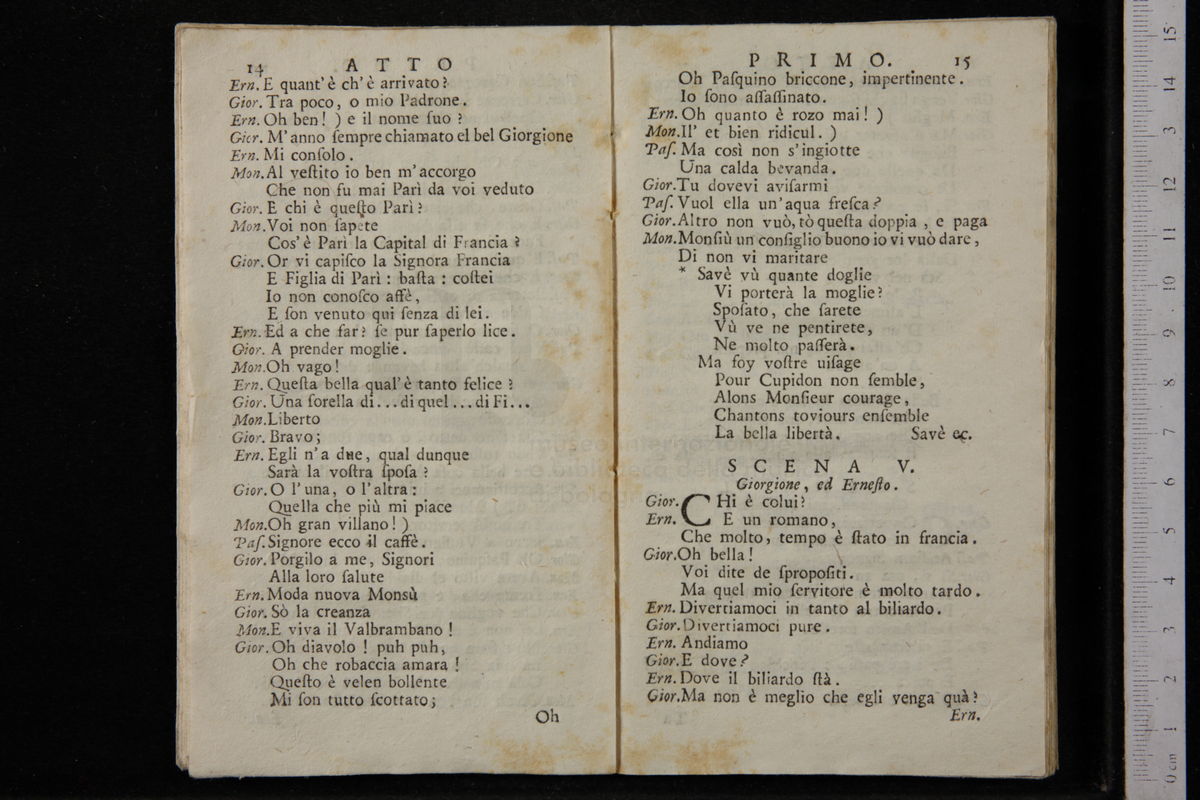 14 ATTO
Ern. E quant' è ch' è arrivato?
Gior. Tra poco, o mio Padrone.
Ern. Oh ben! ) e il nome ſuo ?
Gior. M'anno ſempre chiamato el bel Giorgione
Ern. Mi conſolo.
Mon. Al veſtito io ben m'accorgo
Che non fu mai Parì da voi veduto
Gior. E chi è queſto Parì?
Mon. Voi non ſapete
Cos'è Parì la Capital di Francia ?
Gior. Or vi capiſco la Signora Francia
E Figlia di Parì : baſta : coſtei
Io non conoſco affè,
E ſon venuto qui ſenza di lei.
Ern. Ed a che far? ſe pur ſaperlo lice.
Gior. A prender moglie.
Mon. Oh vago!
Ern. Queſta bella qual'è tanto felice ?
Gior. Una ſorella di... di quel... di Fi...
Mon. Liberto
Gior. Bravo;
Ern. Egli n'a due, qual dunque
Sarà la voſtra ſpoſa ?
Gior. O l'una, o l'altra :
Quella che più mi piace
Mon. Oh gran villano! )
Paſ. Signore ecco il caffè.
Gior. Porgilo a me, Signori
Alla loro ſalute
Ern. Moda nuova Monsù
Gior. Sò la creanza
Mon. E viva il Valbrambano !
Gior. Oh diavolo ! puh puh,
Oh che robaccia amara !
Queſto è velen bollente
Mi ſon tutto ſcottato;
Oh
PRIMO. 15
Oh Paſquino briccone, impertinente.
Io ſono aſſaſſinato.
Ern. Oh quanto è rozo mai! )
Mon. Il' et bien ridicul. )
Paſ. Ma così non s'ingiotte
Una calda bevanda.
Gior. Tu dovevi aviſarmi
Paſ. Vuol ella un'aqua freſca?
Gior. Altro non vuò, tò queſta doppia , e paga
Mon. Monſiù un conſiglio buono io vi vuò dare,
Di non vi maritare
* Savè vù quante doglie
Vi porterà la moglie?
Spoſato, che ſarete
Vù ve ne pentirete,
Ne molto paſſerà.
Ma foy voſtre uiſage
Pour Cupidon non ſemble,
Alons Monſieur courage,
Chantons toviours enſemble
La bella libertà. Savè ec.
SCENA V.
Giorgione, ed Erneſto.
Gior. CHi è colui?
Ern. E un romano,
Che molto, tempo è ſtato in francia.
Gior. Oh bella!
Voi dite de ſpropoſiti.
Ma quel mio ſervitore è molto tardo.
Ern. Divertiamoci in tanto al biliardo.
Gior. Divertiamoci pure.
Ern. Andiamo
Gior. E dove?
Ern. Dove il biliardo ſtà.
Gior. Ma non è meglio che egli venga quà?
Ern.
0 cm 1 2 3 4 5 6 7 8 9 10 11 12 13 14 15